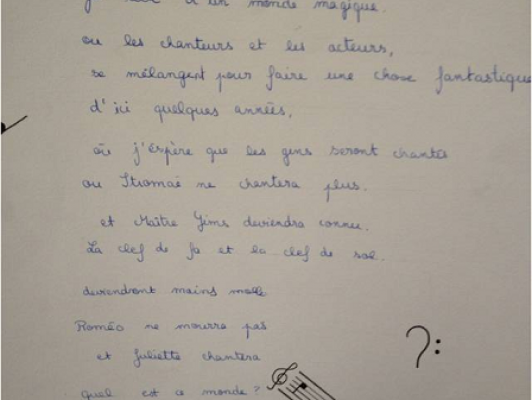 j' rêve d'un monde magique.
ou les chanteurs et les acteurs,
se mélangent pour faire une chose fantastique
d'ici quelques années,
où j'éspère que les gens seront chantés
ou Stromaé ne chantera plus.
et Maître Gims deviendra connu.
La clef de fa et la clef de sol
deviendront mains
Roméo ne mourra pas
et Juliette chantera
quel est ce monde ?